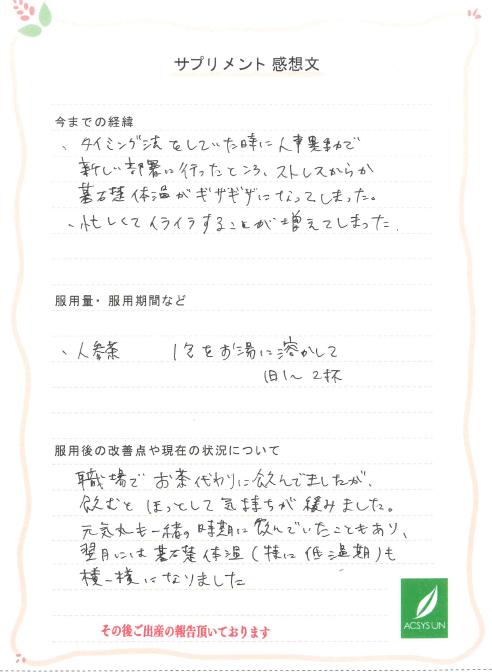 サプリメント 感想文
今までの経緯
、タイミング法をしていた時に人事異動で
新しい部署に行ったところ、ストレスからか
基礎体温がギザギザになってしまった。
、忙しくてイライラすることが増えてしまった.
服用量・服用期間など
、人参茶 1包をお湯に溶かして
1日1〜2杯
服用後の改善点や現在の状況について
職場でお茶代わりに飲んでましたが、
飲むとほっとして気持ちが緩みました。
元気丸も一緒の時期に飲んでいたこともあり、
翌月には基礎体温(特に低温期)も
横一横になりました
その後ご出産の報告頂いております
ACSYSUN